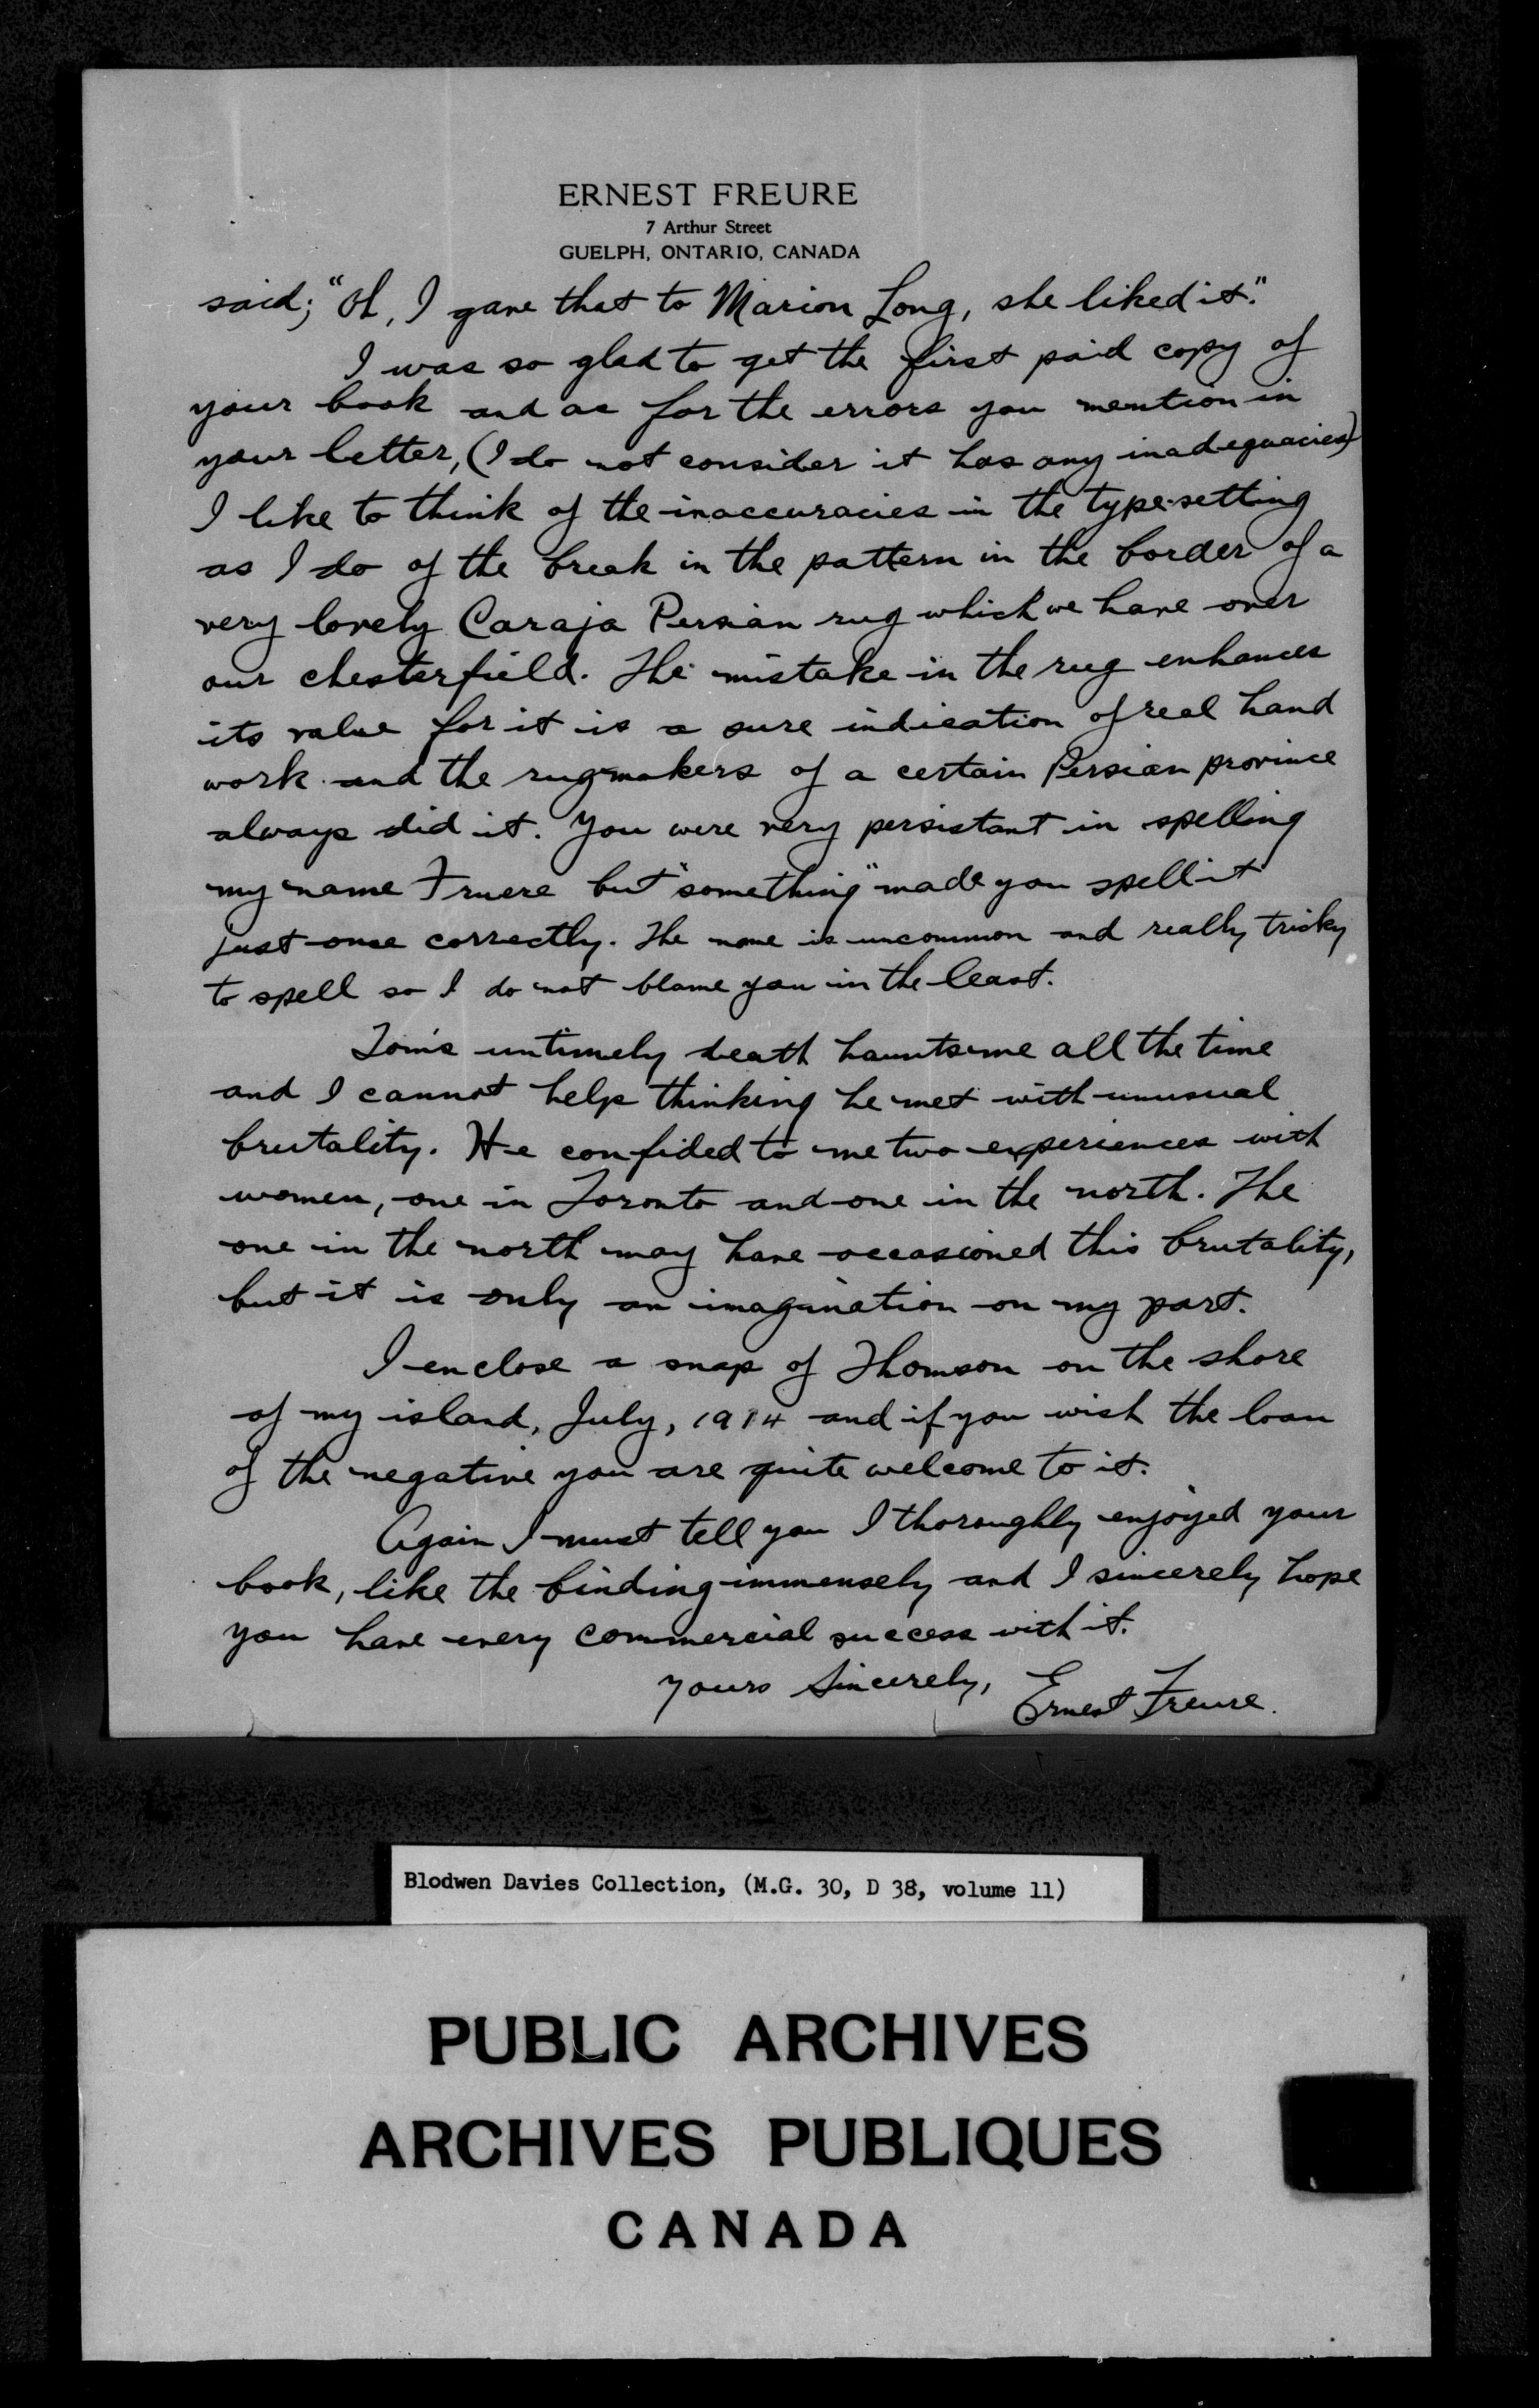 ERNEST FREURE
7 Arthur Street
GUELPH, ONTARIO, CANADA
said; "Oh, I gave that to Marion Long, she liked it."
I was so glad to get the first paid copy of
your book and as for the errors you mention in
your letter, (I do not consider it has any inadequacies)
I like to think of the inaccuracies in the type-setting
as I do of the break in the pattern in the border of a
very lovely Caraja Persian rug which we have over
our chesterfield. The mistake in the rug enhances
its value for it is a sure indication of real hand
work and the rugmakers of a certain Persian province
always did it. You were very persistant in spelling
my name Fruere but "something" made you spell it
just once correctly. The name is uncommon and really tricky
to spell so I do not blame you in the least.
Tom's untimely death haunts me all the time
and I cannot help thinking he met with unusual
brutality. He confided to me two experiences with
women, one in Toronto and one in the north. The
one in the north may have occasioned this brutality,
but it is only an imagination on my part.
I enclose a snap of Thomson on the shore
of my island, July, 1914 and if you wish the loan
of the negative you are quite welcome to it.
Again I must tell you I thoroughly enjoyed your
book, like the binding immensely and I sincerely hope
you have every commercial success with it.
Yours Sincerely, Ernest Freure.
Blodwen Davies Collection, (M.G. 30, D 38, volume 11)
PUBLIC ARCHIVES
ARCHIVES PUBLIQUES
CANADA